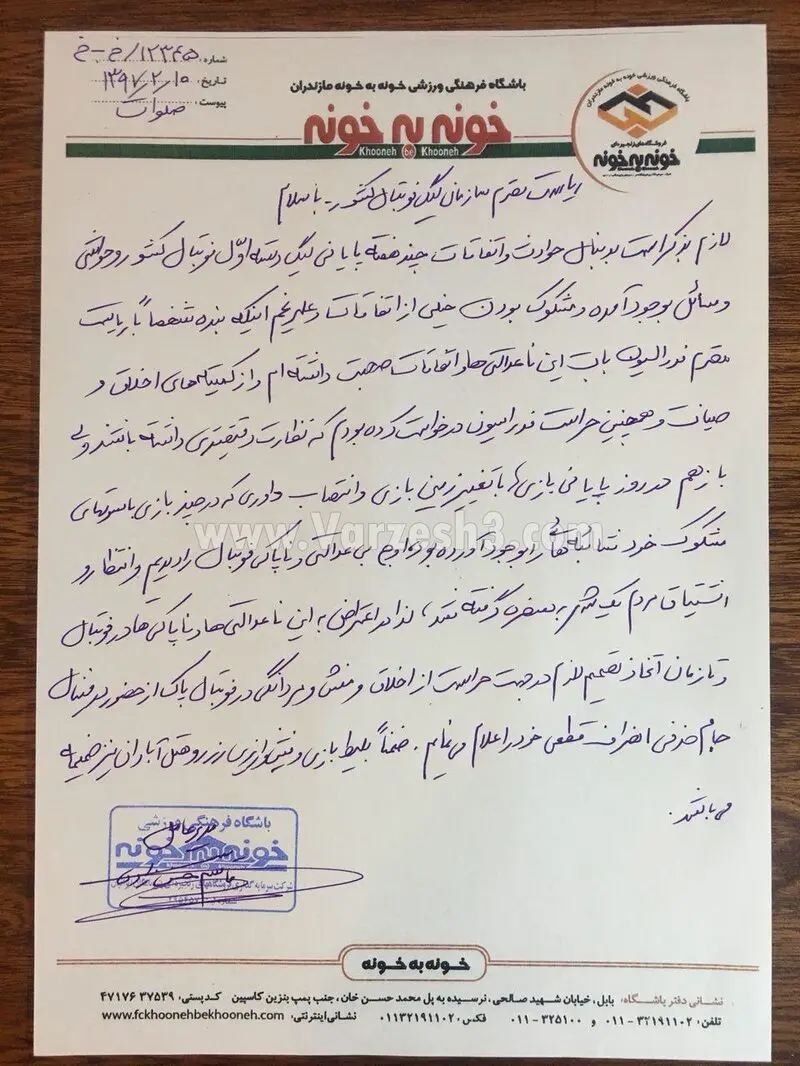 شماره: ۱۲۳۴۵/خ-خ
تاریخ: ۱۳۹۷/۲/۱۰
پیوست: صلوات
باشگاه فرهنگی ورزشی خونه به خونه مازندران
خونه به خونه
Khooneh be Khooneh
باشگاه فرهنگی ورزشی خونه به خونه مازندران
فروشگاه‌های زنجیره‌ای
خونه به خونه
ریاست محترم سازمان لیگ فوتبال کشور - با سلام
لازم بذکر است بدنبال حوادث و اتفاقات چند هفته پایانی لیگ دسته اوّل فوتبال کشور و حواشی
و مسائل بوجود آمده و مشکوک بودن خیلی از اتفاقات و علیرغم اینکه بنده شخصاً با ریاست
محترم فدراسیون بابت این ناعدالتی‌ها و اتفاقات صحبت داشته ام و از کمیته‌های اخلاق و
صیانت و همچنین حراست فدراسیون درخواست کرده بودم که نظارت دقیقتری داشته باشند ولی
بازهم در روز پایانی بازی‌ها با تغییر زمین بازی و انتصاب داوری که در حین بازی با سوتهای
مشکوک خود شائبه‌هائی را بوجود آورده بود اوج بی عدالتی و ناپاکی فوتبال را دیدیم و انتظار و
اشتیاق مردم یک شهر به سخره گرفته شد، لذا در اعتراض به این ناعدالتی‌ها و ناپاکی‌ها در فوتبال
و تا زمان اتخاذ تصمیم لازم در جهت حراست از اخلاق و منش و مردانگی در فوتبال پاک از حضور در فینال
جام حذفی انصراف قطعی خود را اعلام می‌نمایم. ضمناً بلیط بازی و فیش واریزی رزرو هتل آبادان نیز ضمیمه
می‌باشد.
باشگاه فرهنگی ورزشی
خونه به خونه
مدیرعامل
www.Varzesh3.com
خونه به خونه
نشانی دفتر باشگاه: بابل، خیابان شهید صالحی، نرسیده به پل محمد حسن خان، جنب پمپ بنزین کاسپین کدپستی: ۳۷۵۳۹ ۴۷۱۷۶
تلفن: ۳۲۱۹۱۱۰۲-۰۱۱ و ۳۲۵۱۰۰-۰۱۱ فکس: ۰۱۱۳۲۱۹۱۱۰۲ نشانی اینترنتی: www.fckhoonehbekhooneh.com